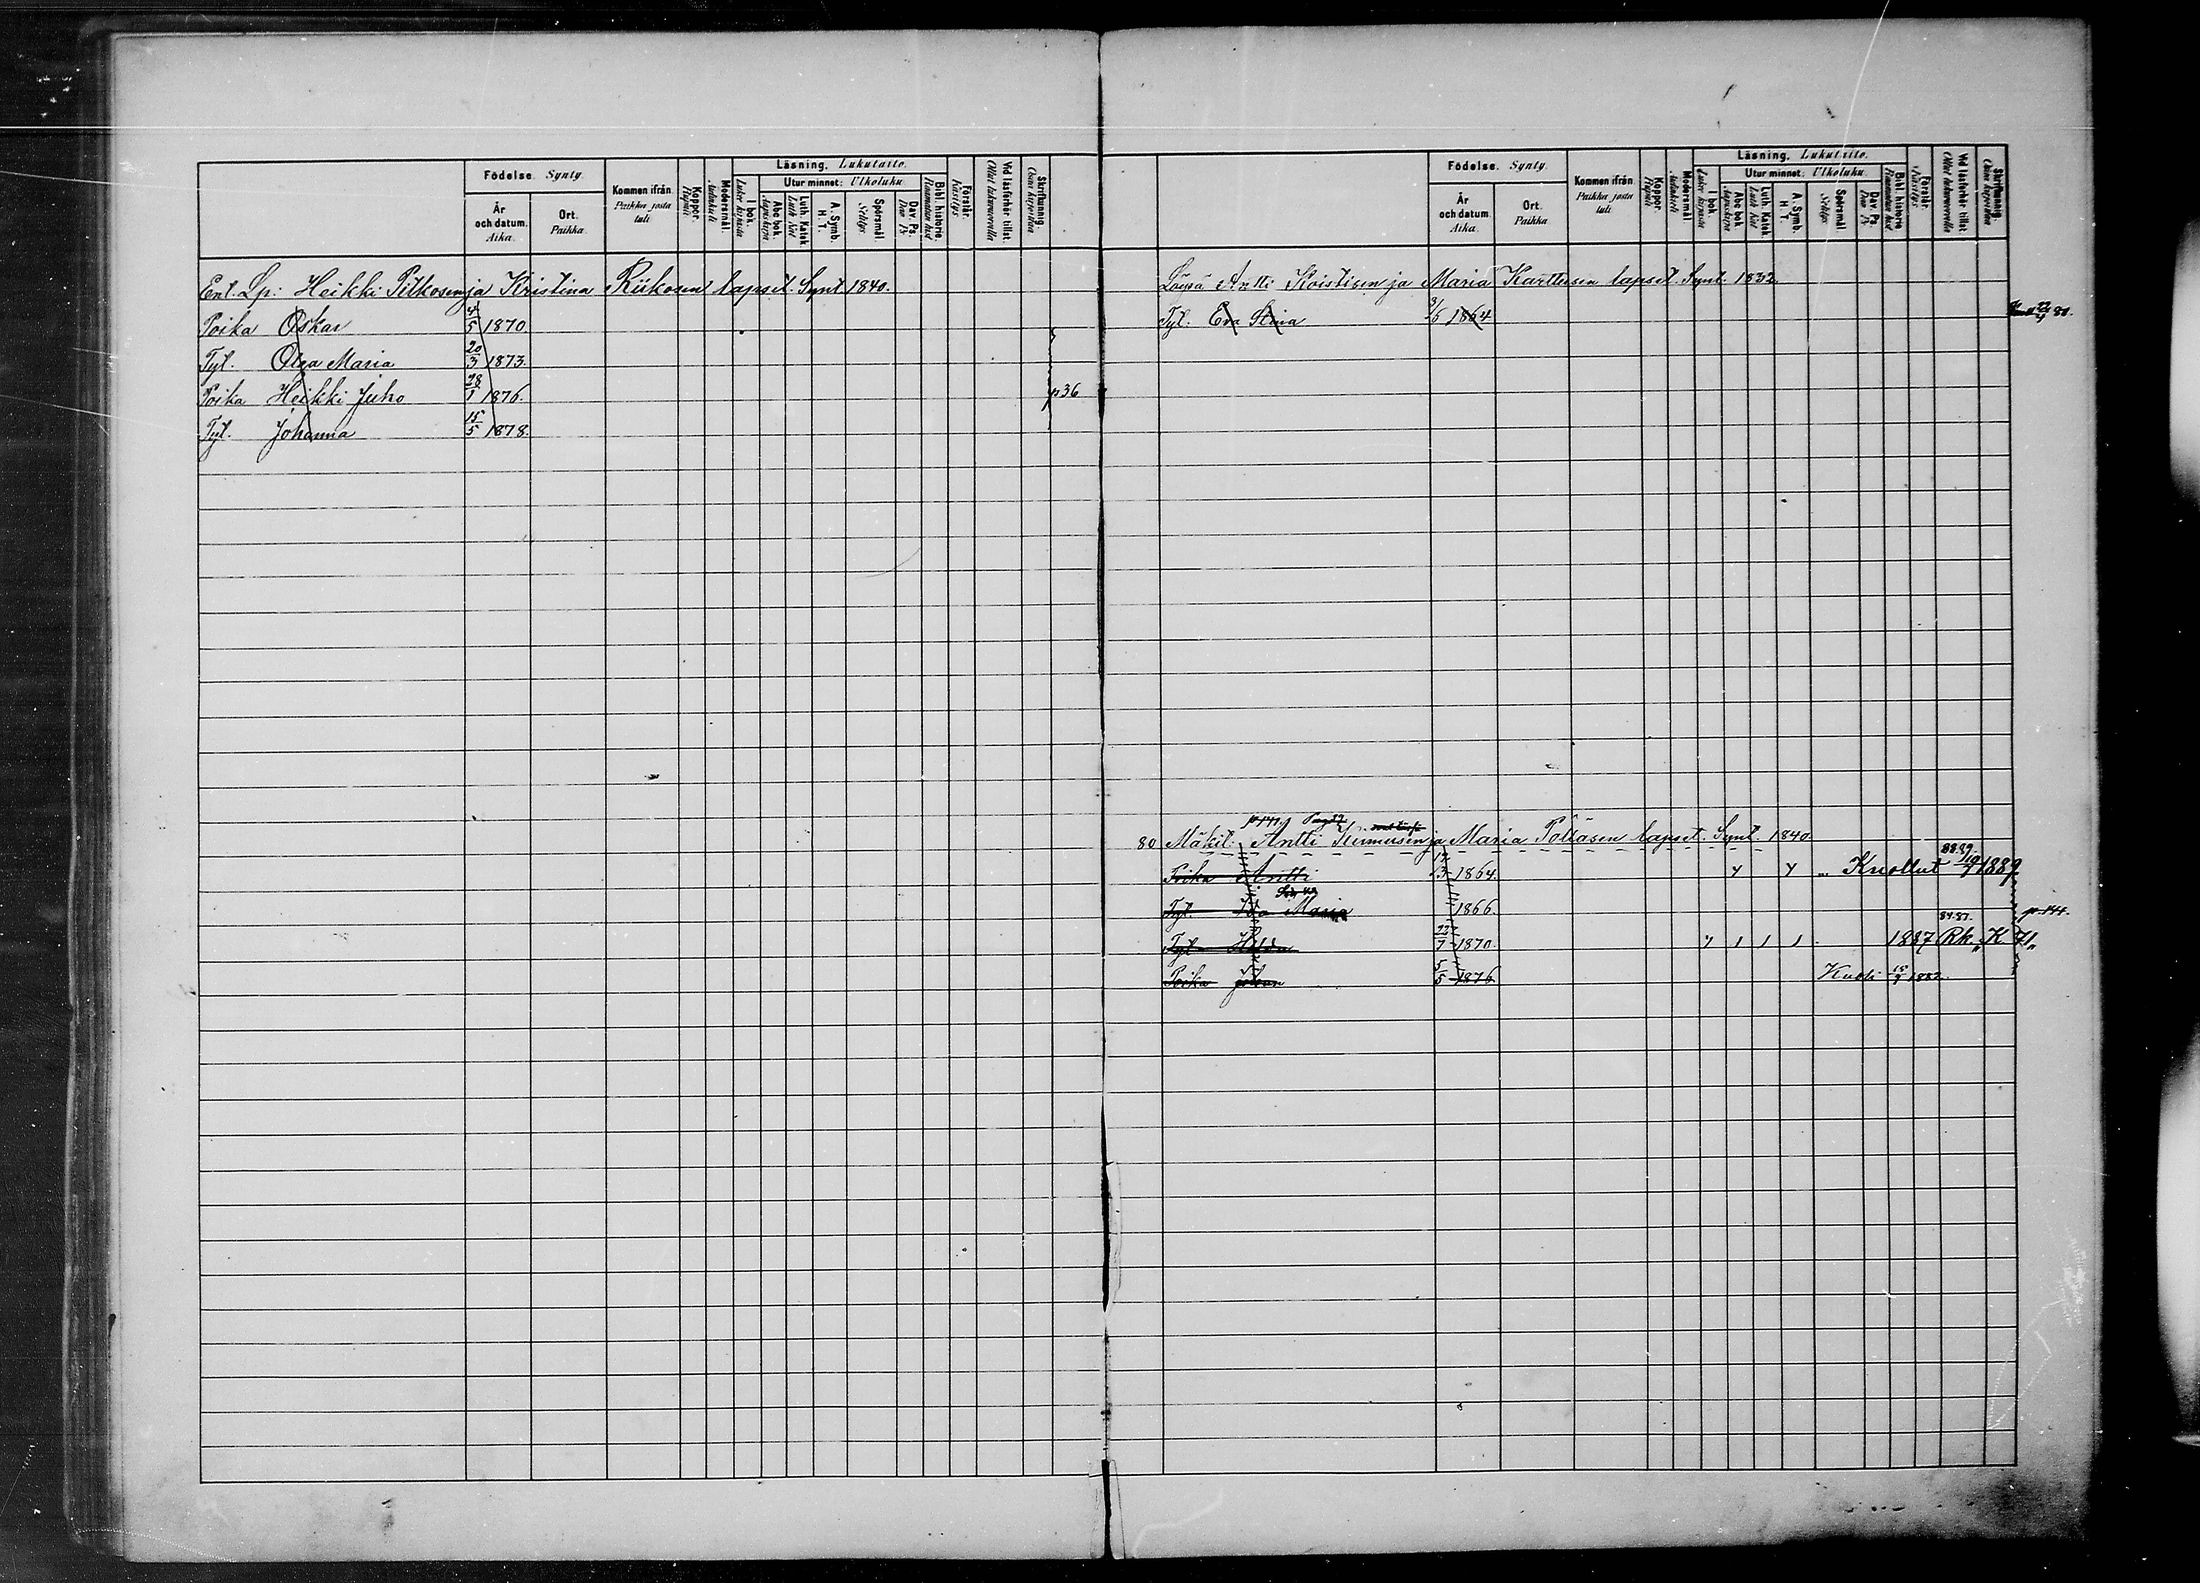 Födelse. Synty.
Kommen ifrån. Paikka josta tuli
Koppor. Rupuli
Modersmål. Äidinkieli
Läsning. Lukutaito.
I bok. Lukee kirjasta
Utur minnet: Ulkoluku.
Abc bok. Aapiskirja
Luth. Katek. Luth. Kat
A. Symb. H. T.
Spörsmål. Selitys
Dav. Ps. Dav. Ps
Bibl. historie.
Förstår. Käsitys.
Vid läsförhör tillst. Ollut lukuvuorolla
Skriftkunnig. Osaa kirjoittaa
År och datum. Aika.
Ort. Paikka.
Ent. Lp: Heikki Pitkosen ja Kristina Riikosen lapset. Synt. 1840.
Poika Oskar 4/5 1870
Tyt. Olga Maria 20/3 1873.
Poika Heikki Juho 28/1 1876. p 36
Tyt. Johanna 15/5 1878.
Födelse. Synty.
Kommen ifrån. Paikka josta tuli
Koppor. Rupuli
Modersmål. Äidinkieli
Läsning. Lukutaito.
I bok. Lukee kirjasta
Utur minnet: Ulkoluku.
Abc bok Aapiskirja
Luth. Katek. Luth Kat
A. Symb. H. T.
Spörsmål Selitys
Dav Ps. Dav Ps
Bibl. historie
Förstår. Käsitys.
Vid läsförhör tillst Ollut lukuvuorolla
Skriftkunnig. Osaa kirjoittaa
År och datum. Aika.
Ort. Paikka.
Loysä Antti Koistisen ja Maria Karttusen lapset. Synt. 1832
Tyt. Eva Stina 3/6 1864.
p. 141
80 Mäkit. Antti ja Maria Pöllösen lapset. Synt. 1840.
88.89.
Poika Antti 1864. 4 4 Kuollut 1889
Tyt. Ida Maria 1866. p. 144.
84.87.
Tyt. Hilda 22/7 1870. 4 1 1 1 1887 Rk „K 71„
Poika Johan 5/5 1876 Kuoli 1882.